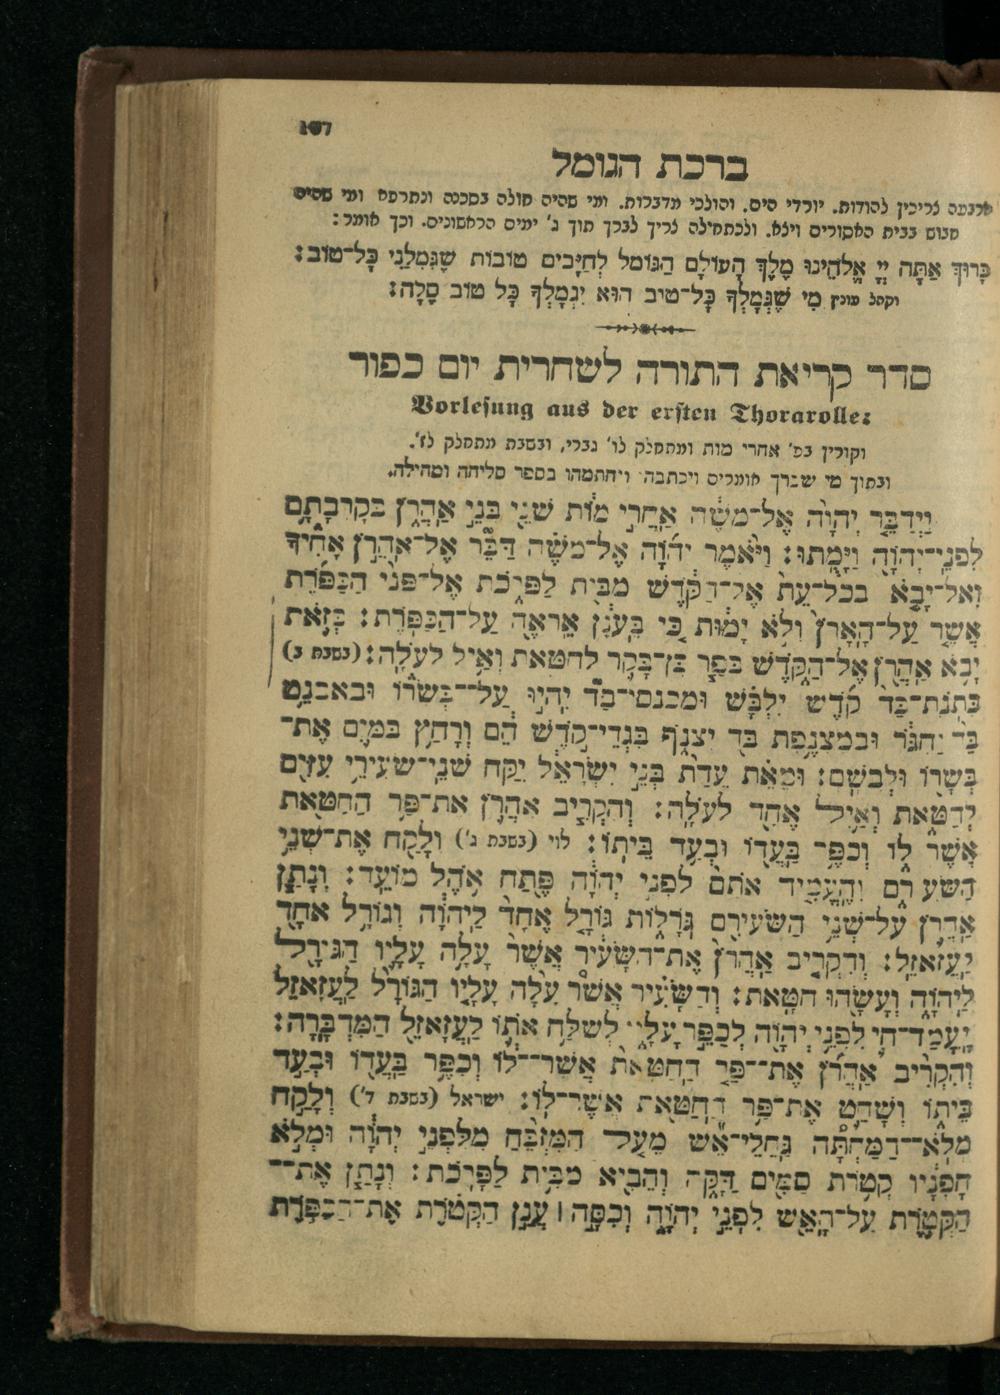 107
ברכת הגומל
ארבעה צריכין להודות. יורדי הים. והולכי מדברות. ומי שהיה חולה בסכנה ונתרפא ומי שהיה
חבוש בבית האסורים ויצא. ולכתחילה צריך לברך תוך ג' ימים הראשונים. וכך אומר:
בָּרוּךְ אַתָּה יְיָ אֱלֹהֵינוּ מֶלֶךְ הָעוֹלָם הַגּוֹמֵל לְחַיָּבִים טוֹבוֹת שֶׁגְּמָלַנִי כָּל־טוֹב:
וקהל עונין מִי שֶׁגְּמָלְךָ כָּל־טוֹב הוּא יִגְמָלְךָ כָּל טוֹב סֶלָה:
סדר קריאת התורה לשחרית יום כפור
Vorlesung aus der ersten Thorarolle:
וקורין בפ' אחרי מות ומתחלק לו' גברי, ובשבת מתחלק לז'.
ובתוך מי שברך אומרים ויכתבהו ויחתמהו בספר סליחה ומחילה.
וַיְדַבֵּ֤ר יְהוָה֙ אֶל־מֹשֶׁ֔ה אַחֲרֵ֣י מ֔וֹת שְׁנֵ֖י בְּנֵ֣י אַהֲרֹ֑ן בְּקָרְבָתָ֥ם
לִפְנֵי־יְהוָ֖ה וַיָּמֻֽתוּ׃ וַיֹּ֨אמֶר יְהוָ֜ה אֶל־מֹשֶׁ֗ה דַּבֵּר֮ אֶל־אַהֲרֹ֣ן אָחִיךָ֒
וְאַל־יָבֹ֤א בְכָל־עֵת֙ אֶל־הַקֹּ֔דֶשׁ מִבֵּ֖ית לַפָּרֹ֑כֶת אֶל־פְּנֵ֨י הַכַּפֹּ֜רֶת
אֲשֶׁ֤ר עַל־הָאָרֹן֙ וְלֹ֣א יָמ֔וּת כִּ֚י בֶּֽעָנָ֔ן אֵרָאֶ֖ה עַל־הַכַּפֹּֽרֶת׃ בְּזֹ֛את
יָבֹ֥א אַהֲרֹ֖ן אֶל־הַקֹּ֑דֶשׁ בְּפַ֧ר בֶּן־בָּקָ֛ר לְחַטָּ֖את וְאַ֥יִל לְעֹלָֽה׃ (בשבת ב)
כְּתֹֽנֶת־בַּ֨ד קֹ֜דֶשׁ יִלְבָּ֗שׁ וּמִֽכְנְסֵי־בַד֮ יִהְי֣וּ עַל־־בְּשָׂרוֹ֒ וּבְאַבְנֵ֥ט
בַּד֙ יַחְגֹּ֔ר וּבְמִצְנֶ֥פֶת בַּ֖ד יִצְנֹ֑ף בִּגְדֵי־קֹ֣דֶשׁ הֵ֔ם וְרָחַ֥ץ בַּמַּ֛יִם אֶת־
בְּשָׂר֖וֹ וּלְבֵשָֽׁם׃ וּמֵאֵ֗ת עֲדַת֙ בְּנֵ֣י יִשְׂרָאֵ֔ל יִקַּ֛ח שְׁנֵֽי־שְׂעִירֵ֥י עִזִּ֖ים
לְחַטָּ֑את וְאַ֥יִל אֶחָ֖ד לְעֹלָֽה׃ וְהִקְרִ֧יב אַהֲרֹ֛ן אֶת־פַּ֥ר הַחַטָּ֖את
אֲשֶׁר־ל֑וֹ וְכִפֶּ֥ר בַּעֲד֖וֹ וּבְעַ֥ד בֵּיתֽוֹ׃ לוי (בשבת ג') וְלָקַ֖ח אֶת־שְׁנֵ֣י
הַשְּׂעִירִ֑ם וְהֶעֱמִ֤יד אֹתָם֙ לִפְנֵ֣י יְהוָ֔ה פֶּ֖תַח אֹ֥הֶל מוֹעֵֽד׃ וְנָתַ֧ן
אַהֲרֹ֛ן עַל־שְׁנֵ֥י הַשְּׂעִירִ֖ם גֹּרָל֑וֹת גּוֹרָ֤ל אֶחָד֙ לַיהוָ֔ה וְגוֹרָ֥ל אֶחָ֖ד
לַעֲזָאזֵֽל׃ וְהִקְרִ֤יב אַהֲרֹן֙ אֶת־הַשָּׂעִ֔יר אֲשֶׁ֨ר עָלָ֥ה עָלָ֛יו הַגּוֹרָ֖ל
לַיהוָ֑ה וְעָשָׂ֖הוּ חַטָּֽאת׃ וְהַשָּׂעִ֗יר אֲשֶׁר֩ עָלָ֨ה עָלָ֤יו הַגּוֹרָל֙ לַעֲזָאזֵ֔ל
יָֽעֳמַד־חַ֛י לִפְנֵ֥י יְהוָ֖ה לְכַפֵּ֣ר עָלָ֑יו לְשַׁלַּ֥ח אֹת֛וֹ לַעֲזָאזֵ֖ל הַמִּדְבָּֽרָה׃
וְהִקְרִ֨יב אַהֲרֹ֜ן אֶת־־פַּ֤ר הַֽחַטָּאת֙ אֲשֶׁר־־ל֔וֹ וְכִפֶּ֥ר בַּֽעֲד֖וֹ וּבְעַ֣ד
בֵּית֑וֹ וְשָׁחַ֛ט אֶת־פַּ֥ר הַֽחַטָּ֖את אֲשֶׁר־לֽוֹ׃ ישראל (בשבת ד') וְלָקַ֣ח
מְלֹֽא־־הַ֠מַּחְתָּה גַּֽחֲלֵי־אֵ֞שׁ מֵעַ֤ל הַמִּזְבֵּ֙חַ֙ מִלִּפְנֵ֣י יְהוָ֔ה וּמְלֹ֣א
חָפְנָ֔יו קְטֹ֥רֶת סַמִּ֖ים דַּקָּ֑ה וְהֵבִ֖יא מִבֵּ֥ית לַפָּרֹֽכֶת׃ וְנָתַ֧ן אֶֽת־־
הַקְּטֹ֛רֶת עַל־הָאֵ֖שׁ לִפְנֵ֣י יְהוָ֑ה וְכִסָּ֣ה ׀ עֲנַ֣ן הַקְּטֹ֗רֶת אֶת־הַכַּפֹּ֛רֶת